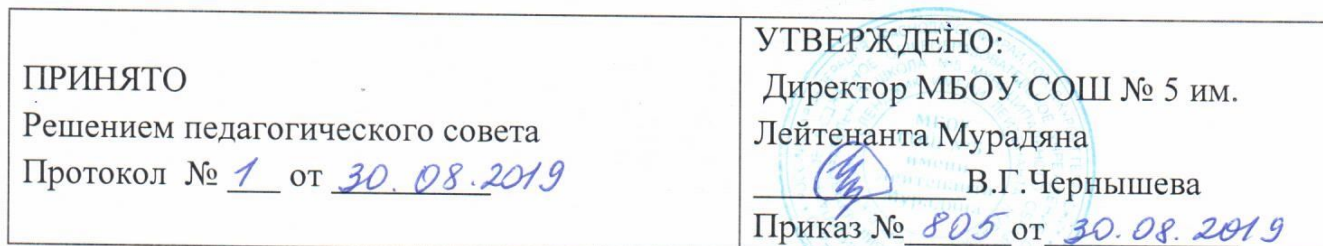 ПРИНЯТО
Решением педагогического совета
Протокол № 1 от 30.08.2019
УТВЕРЖДЕНО:
Директор МБОУ СОШ № 5 им.
Лейтенанта Мурадяна
В.Г.Чернышева
Приказ № 805 от 30.08.2019